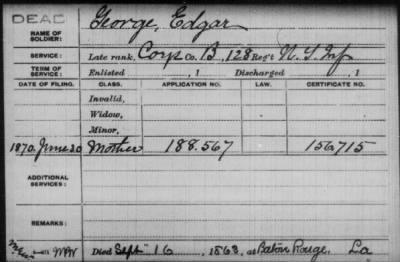 DEAD
George, Edgar
NAME OF SOLDIER:
SERVICE: Late rank, Corp Co. B, 128 Reg't N.Y. Inf
TERM OF SERVICE: Enlisted , 1 Discharged , 1
DATE OF FILING. CLASS. APPLICATION NO. LAW. CERTIFICATE NO.
Invalid,
Widow,
Minor,
1870. June 20 Mother 188.567 156715
ADDITIONAL SERVICES:
REMARKS:
Died Sept 16, 1863, at Baton Rouge, La